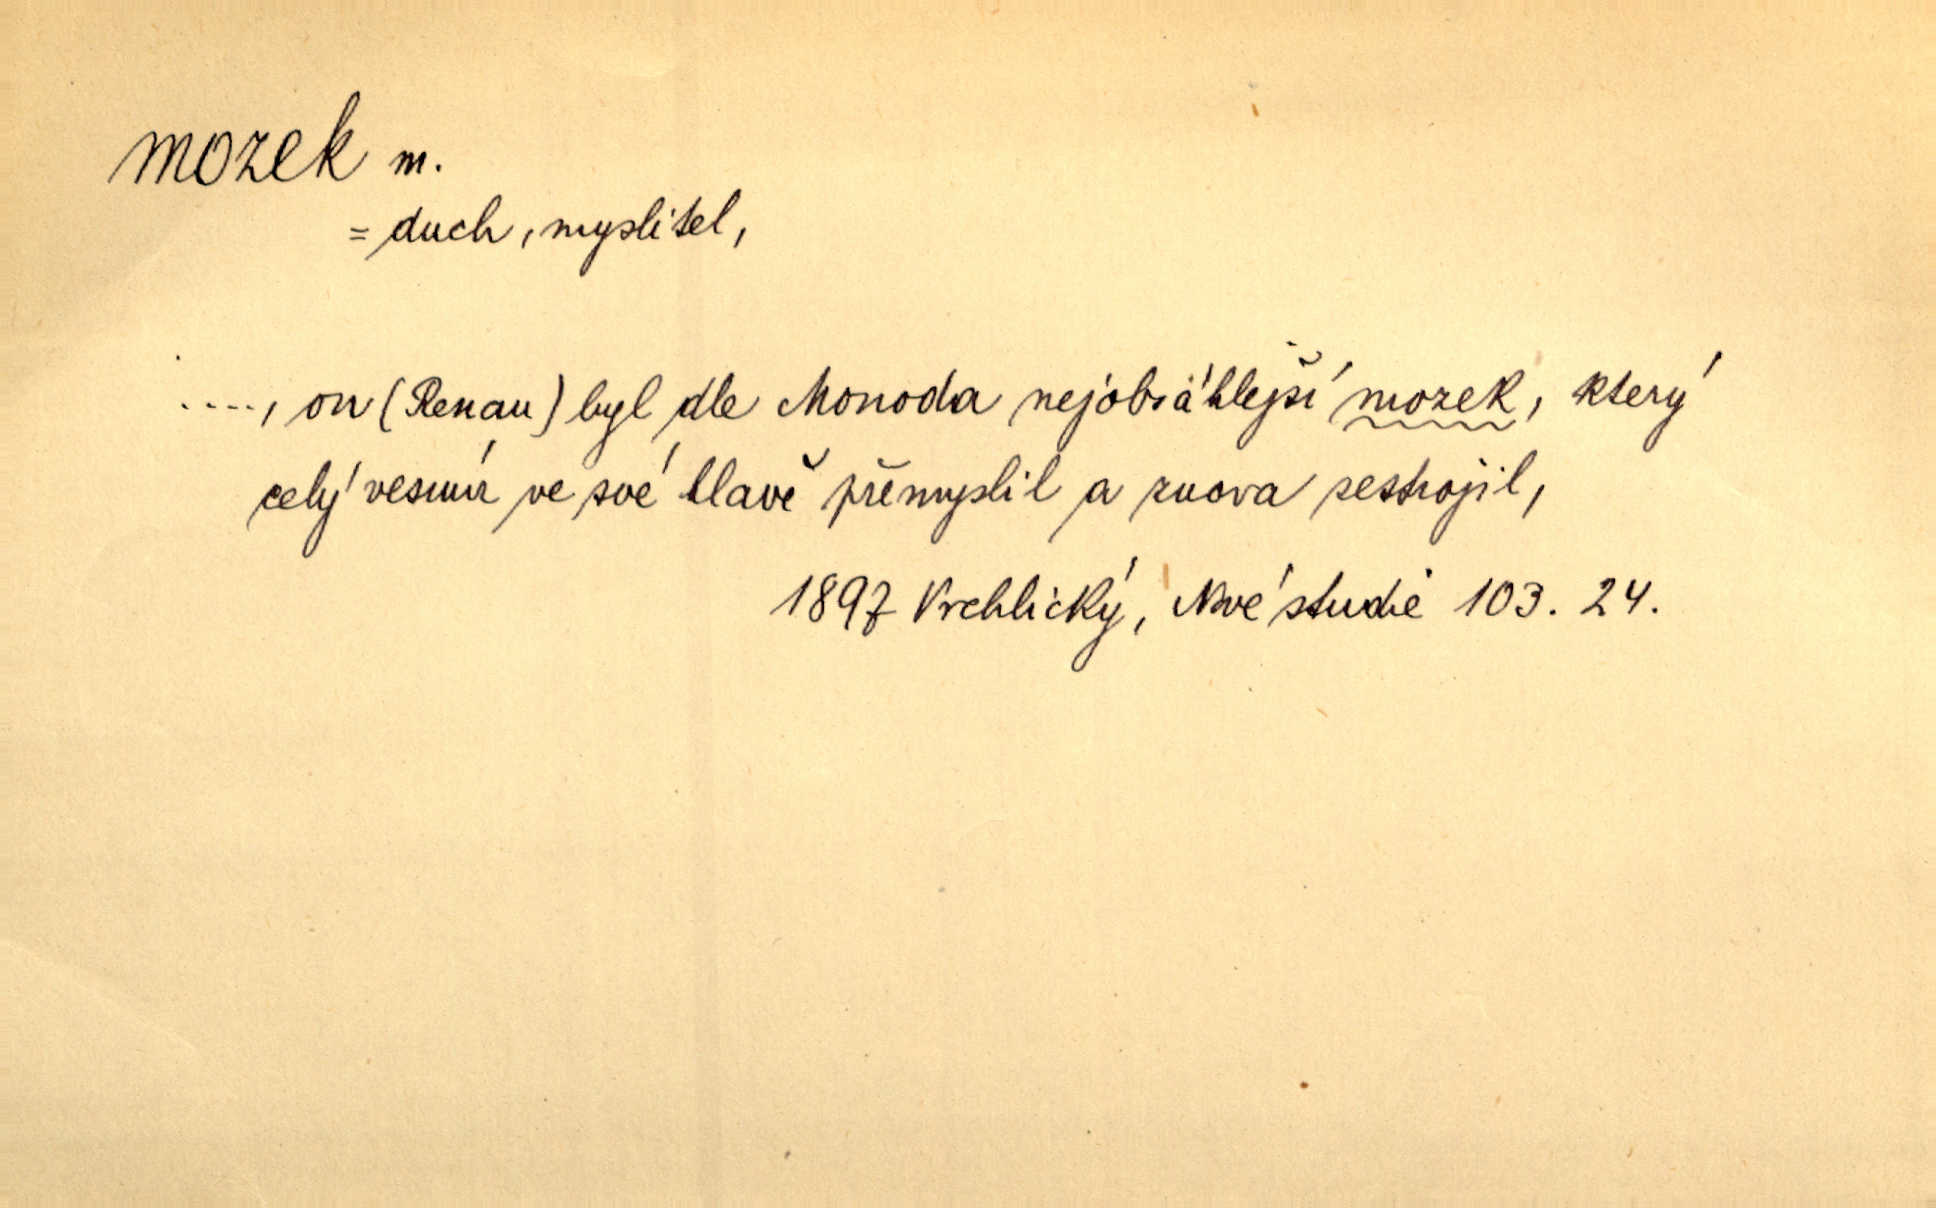 mozek m.
= duch, myslitel,
...., on (Renan) byl dle Monoda nejobsáhlejší mozek, který
celý vesmír ve své hlavě přemyslil a znova sestrojil,
1897 Vrchlický, Nové studie 103. 24.